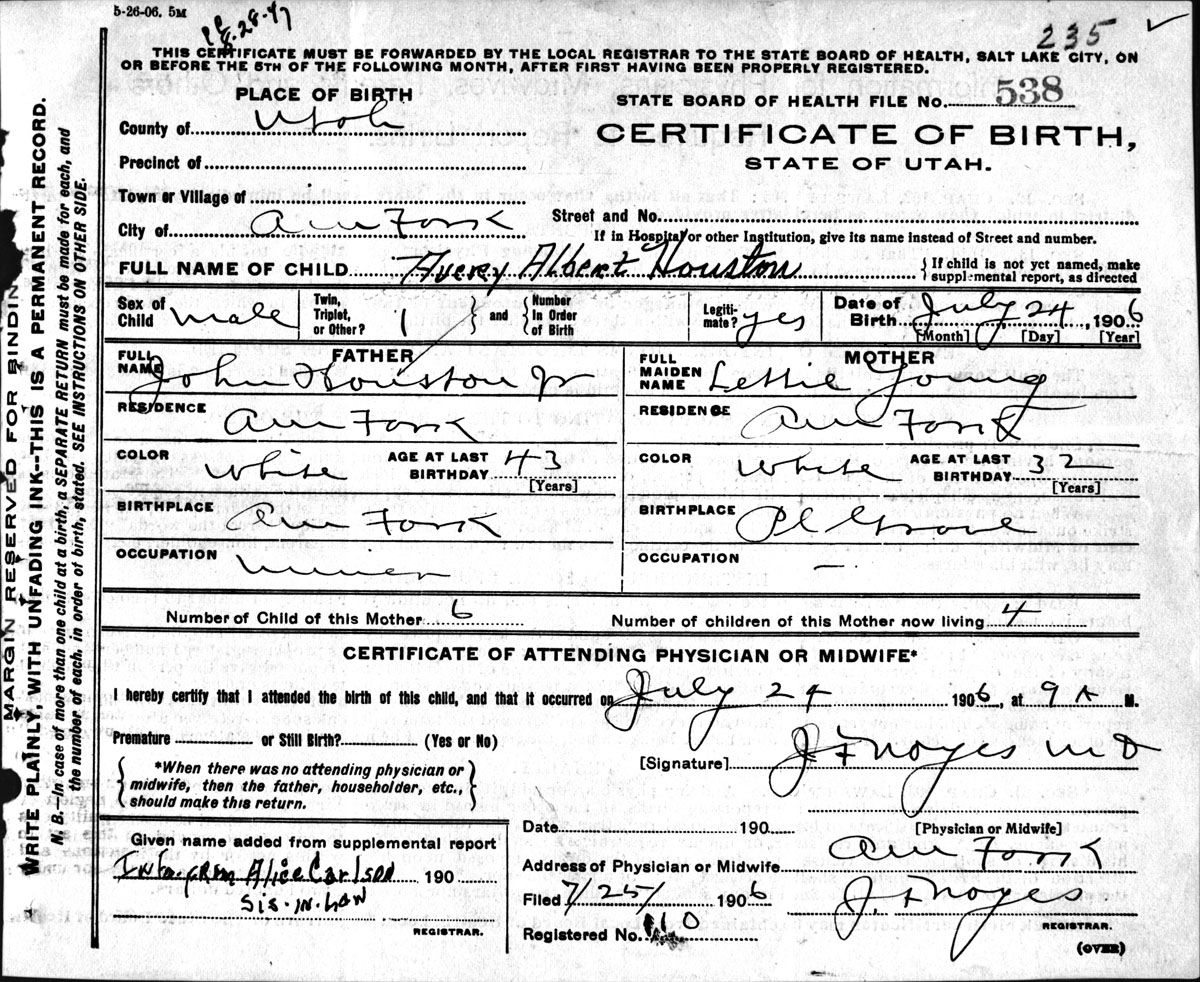 5-26-06. 5M
8-28-47
235
THIS CERTIFICATE MUST BE FORWARDED BY THE LOCAL REGISTRAR TO THE STATE BOARD OF HEALTH, SALT LAKE CITY, ON
OR BEFORE THE 5TH OF THE FOLLOWING MONTH, AFTER FIRST HAVING BEEN PROPERLY REGISTERED.
MARGIN RESERVED FOR BINDING
WRITE PLAINLY, WITH UNFADING INK--THIS IS A PERMANENT RECORD.
N. B.--In case of more than one child at a birth, a SEPARATE RETURN must be made for each, and
the number of each, in order of birth, stated. SEE INSTRUCTIONS ON OTHER SIDE.
PLACE OF BIRTH
County of Utah
Precinct of
Town or Village of
City of Am Fork
STATE BOARD OF HEALTH FILE No. 538
CERTIFICATE OF BIRTH,
STATE OF UTAH.
Street and No.
If in Hospital or other Institution, give its name instead of Street and number.
FULL NAME OF CHILD Avery Albert Houston
{ If child is not yet named, make
supplemental report, as directed
Sex of Child male
Twin, Triplet, or Other? 1
and
Number In Order of Birth
Legiti- mate? yes
Date of Birth July 24, 1906
[Month] [Day] [Year]
FATHER
FULL NAME John Houston Jr
RESIDENCE Am Fork
COLOR White AGE AT LAST BIRTHDAY 43
[Years]
BIRTHPLACE Am Fork
OCCUPATION miner
MOTHER
FULL MAIDEN NAME Lettie Young
RESIDENCE Am Fork
COLOR White AGE AT LAST BIRTHDAY 32
[Years]
BIRTHPLACE Pl Grove
OCCUPATION –
Number of Child of this Mother 6 Number of children of this Mother now living 4
CERTIFICATE OF ATTENDING PHYSICIAN OR MIDWIFE*
I hereby certify that I attended the birth of this child, and that it occurred on July 24 1906, at 9 A M.
Premature or Still Birth? (Yes or No)
[Signature] J F Noyes MD
*When there was no attending physician or
midwife, then the father, householder, etc.,
should make this return.
Date 190
[Physician or Midwife]
Given name added from supplemental report
Alice Carlson 190
Sis-in-Law
REGISTRAR.
Address of Physician or Midwife Am Fork
Filed 7/25/ 1906 J. F Noyes
REGISTRAR.
Registered No. 110
(OVER)